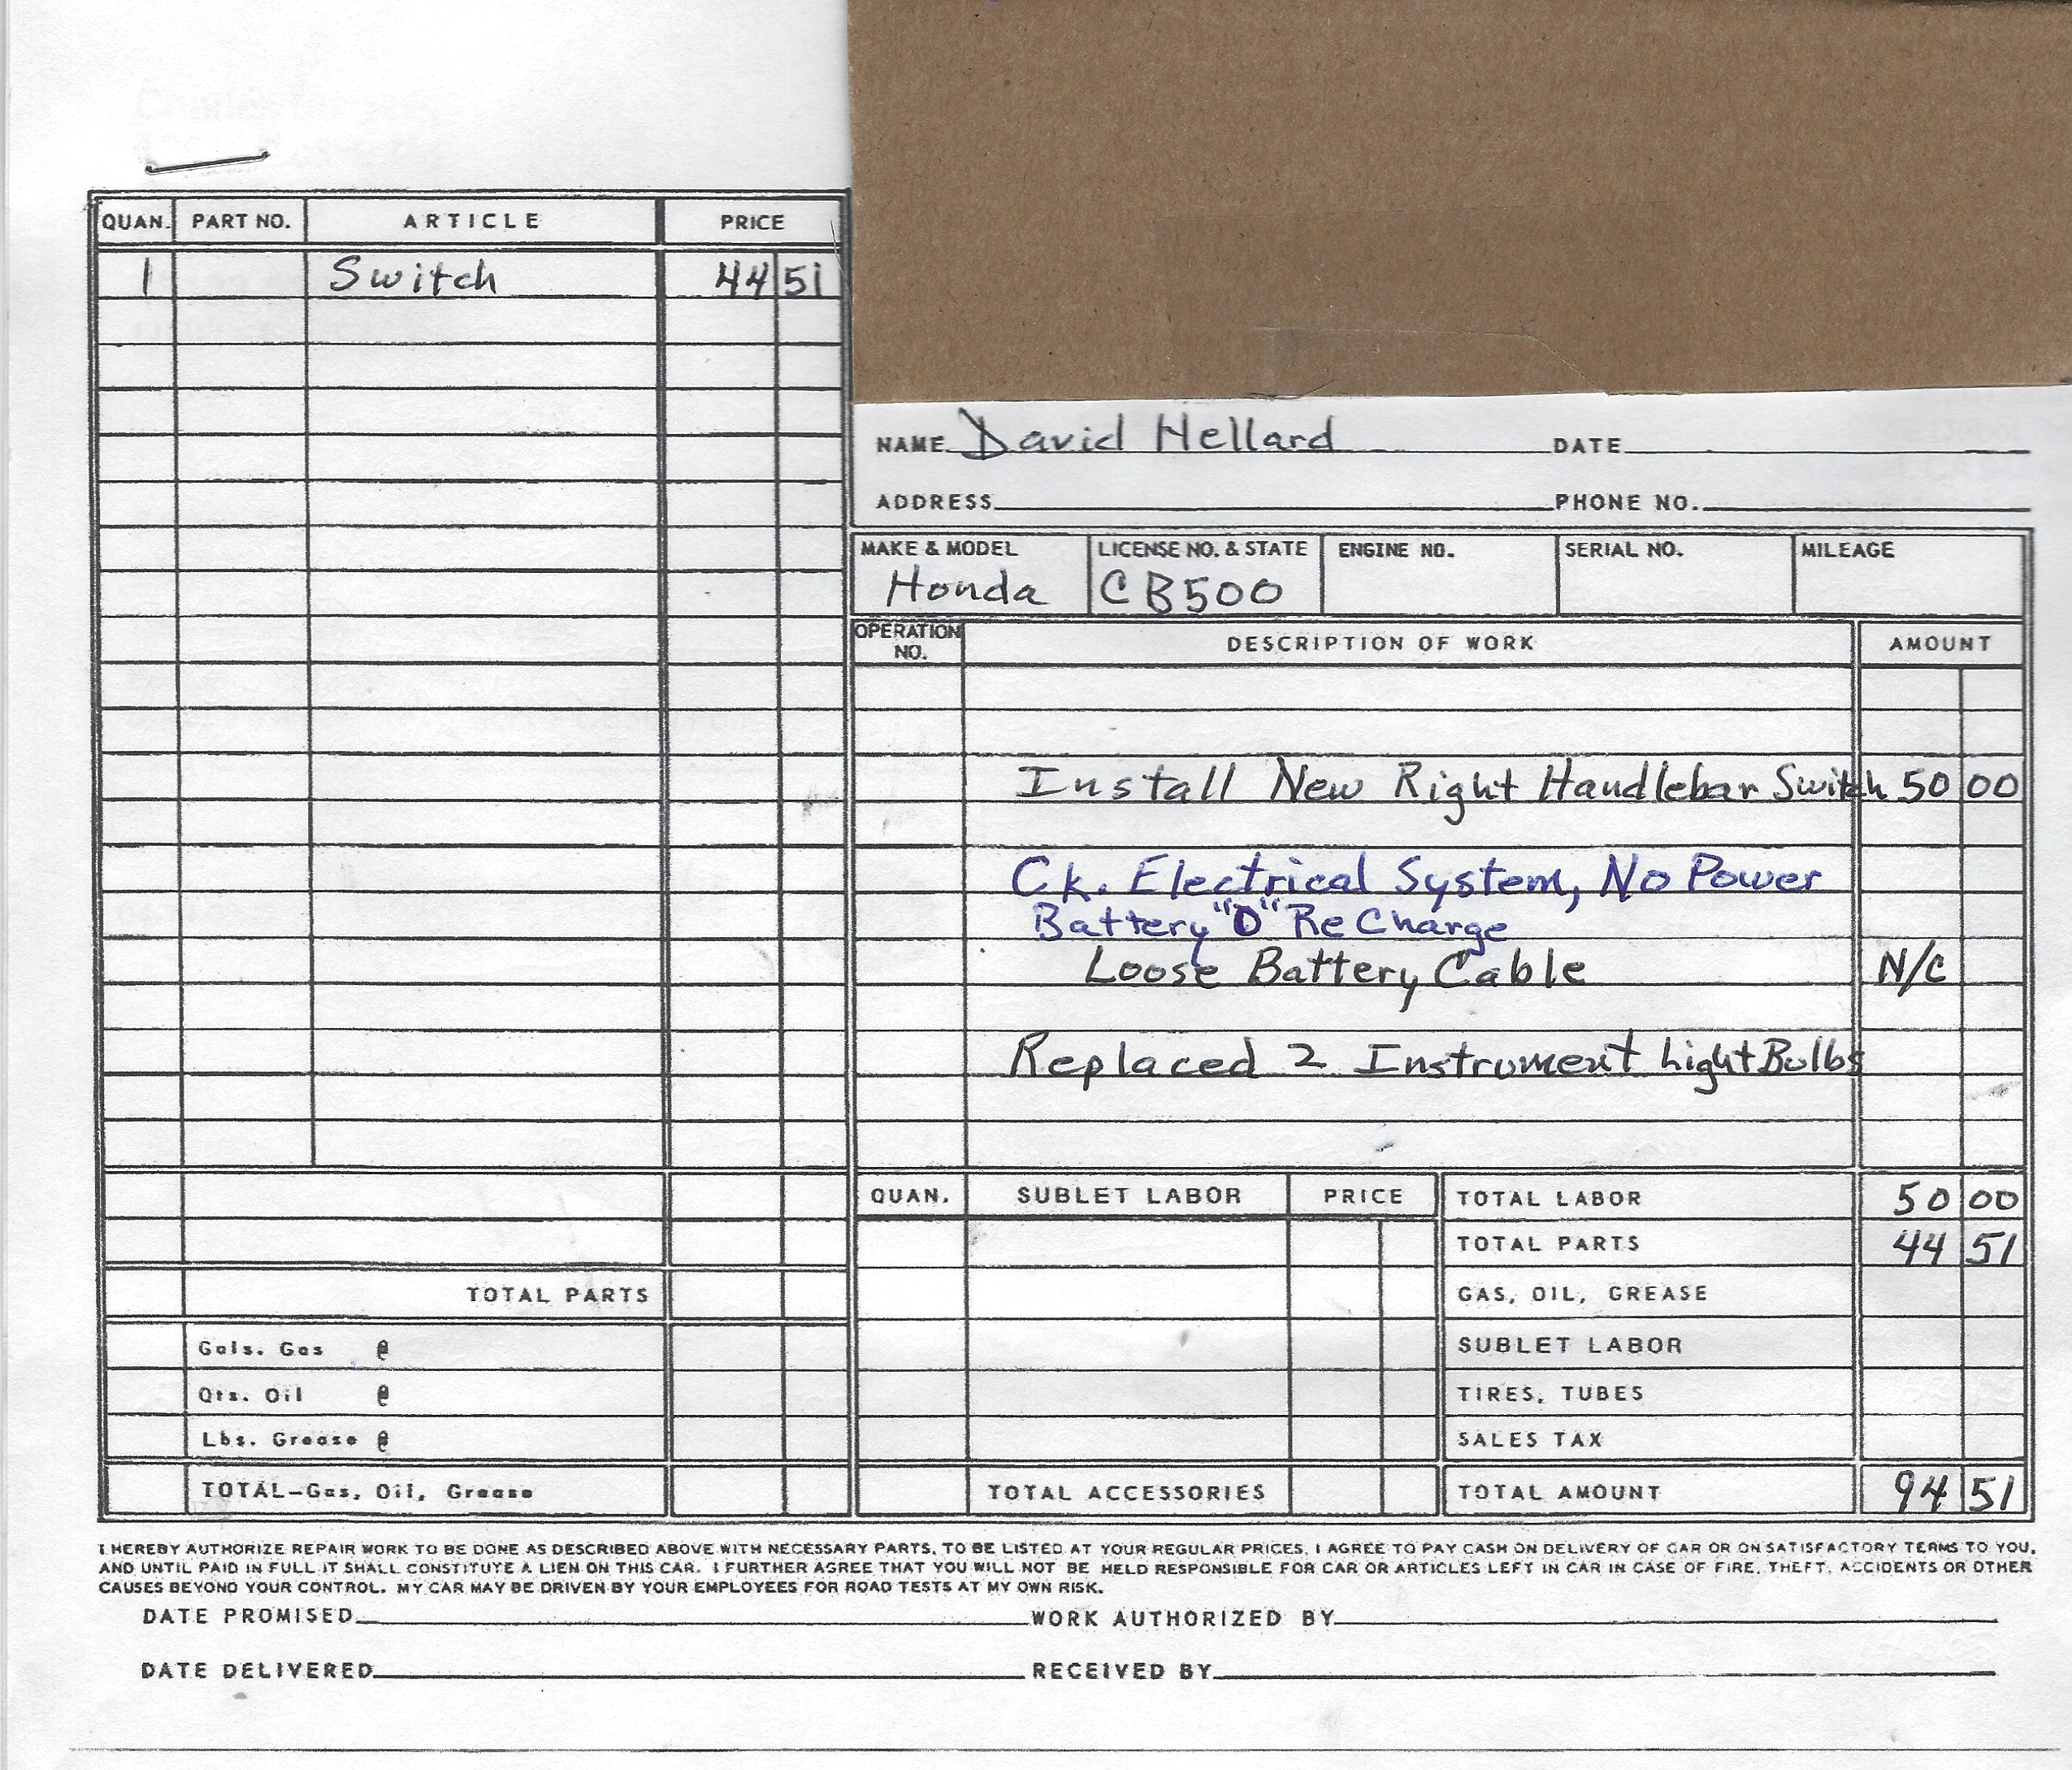 QUAN. PART NO. ARTICLE PRICE
1 Switch 44 51
NAME David Hellard DATE
ADDRESS PHONE NO.
MAKE & MODEL LICENSE NO. & STATE ENGINE NO. SERIAL NO. MILEAGE
Honda CB500
OPERATION NO. DESCRIPTION OF WORK AMOUNT
Install New Right Handlebar Switch 50 00
Ck. Electrical System, No Power
Battery "0" ReCharge
Loose Battery Cable N/C
Replaced 2 Instrument Light Bulbs
QUAN. SUBLET LABOR PRICE TOTAL LABOR 50 00
TOTAL PARTS 44 51
TOTAL PARTS GAS, OIL, GREASE
Gals. Gas @ SUBLET LABOR
Qts. Oil @ TIRES, TUBES
Lbs. Grease @ SALES TAX
TOTAL-Gas, Oil, Grease TOTAL ACCESSORIES TOTAL AMOUNT 94 51
I HEREBY AUTHORIZE REPAIR WORK TO BE DONE AS DESCRIBED ABOVE WITH NECESSARY PARTS, TO BE LISTED AT YOUR REGULAR PRICES. I AGREE TO PAY CASH ON DELIVERY OF CAR OR ON SATISFACTORY TERMS TO YOU,
AND UNTIL PAID IN FULL IT SHALL CONSTITUTE A LIEN ON THIS CAR. I FURTHER AGREE THAT YOU WILL NOT BE HELD RESPONSIBLE FOR CAR OR ARTICLES LEFT IN CAR IN CASE OF FIRE, THEFT, ACCIDENTS OR OTHER
CAUSES BEYOND YOUR CONTROL. MY CAR MAY BE DRIVEN BY YOUR EMPLOYEES FOR ROAD TESTS AT MY OWN RISK.
DATE PROMISED WORK AUTHORIZED BY
DATE DELIVERED RECEIVED BY